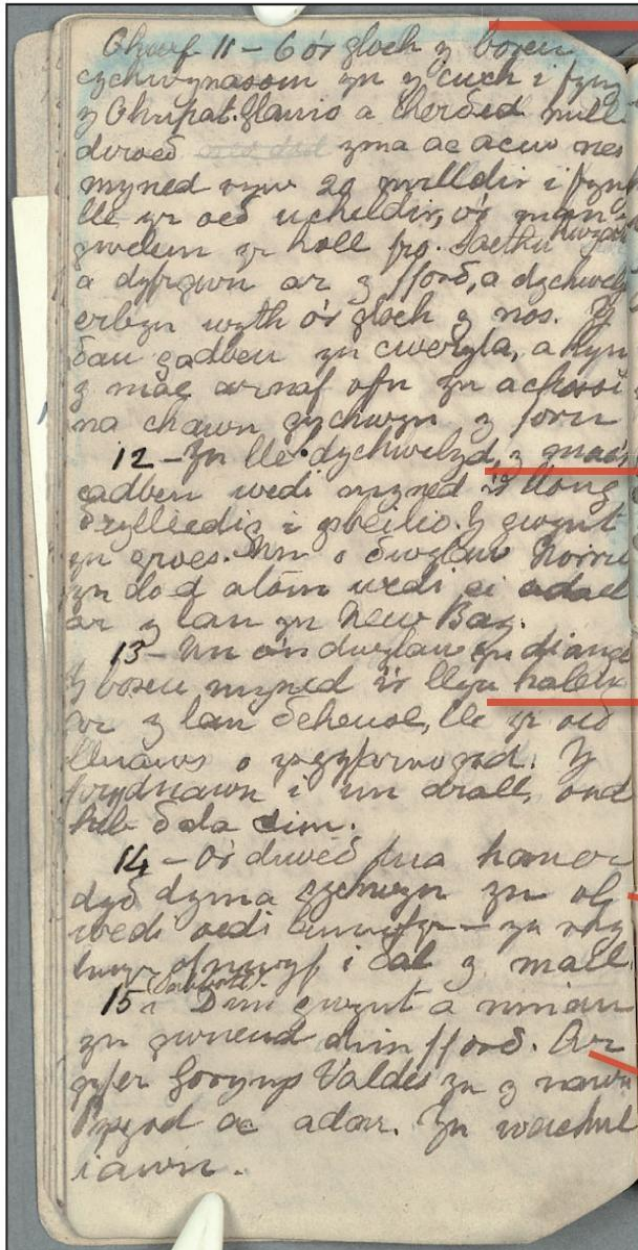 Chwef 11 – 6 o'r gloch y boreu
cychwynasom yn y cwch i fyny
y Chupat. Glanio a cherđed mill
dwoeđ yma ac acw nes
myned ryw 20 milldir i fyny
lle yr oeđ ucheldir, o'r
gwelem yr holl fro. Saethu
a dyfrgwn ar y fforđ, a dychwely
erbyn wyth o'r gloch y nos. Y
đau gadben yn cweryla, a hyn
y mae arnaf ofn yn achosi
na chawn gychwyn y foru
12 – Yn lle dychwelyd, y
cadben wedi myned i'r llong
đrylliedig i ysbeilio. Y gwynt
yn groes. Un o đwylaw
yn dod atom wedi ei adael
ar y lan yn New Bay.
13 – Un o'n dwylaw yn diang
Y boreu myned i'r llyn halen
ar y lan đeheuol, lle yr oeđ
lluaws o ysgyfarnogod. Y
prydnawn i un arall, ond
heb đala dim.
14 – O'r diweđ tua haner
dyđ dyma gychwyn yn ol
wedi oedi – yn rhy
hwyr ofnwyf i đal y mail
15 (Sabboth). Dim gwynt a ninau
yn gwneud dim fforđ. Ar
gyfer Gorynys Valdes yn y nawn
Pysgod ac adar. Yn wachul
iawn.